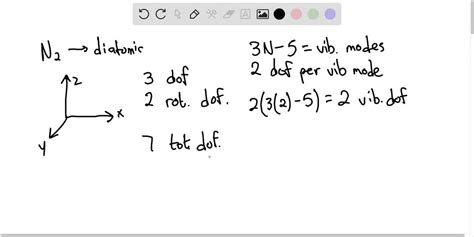 N₂ → diatomic
z
x
y
3 dof
2 rot. dof.
7 tot. dof.
3N-5 = vib. modes
2 dof per vib mode
2(3(2)-5) = 2 vib. dof